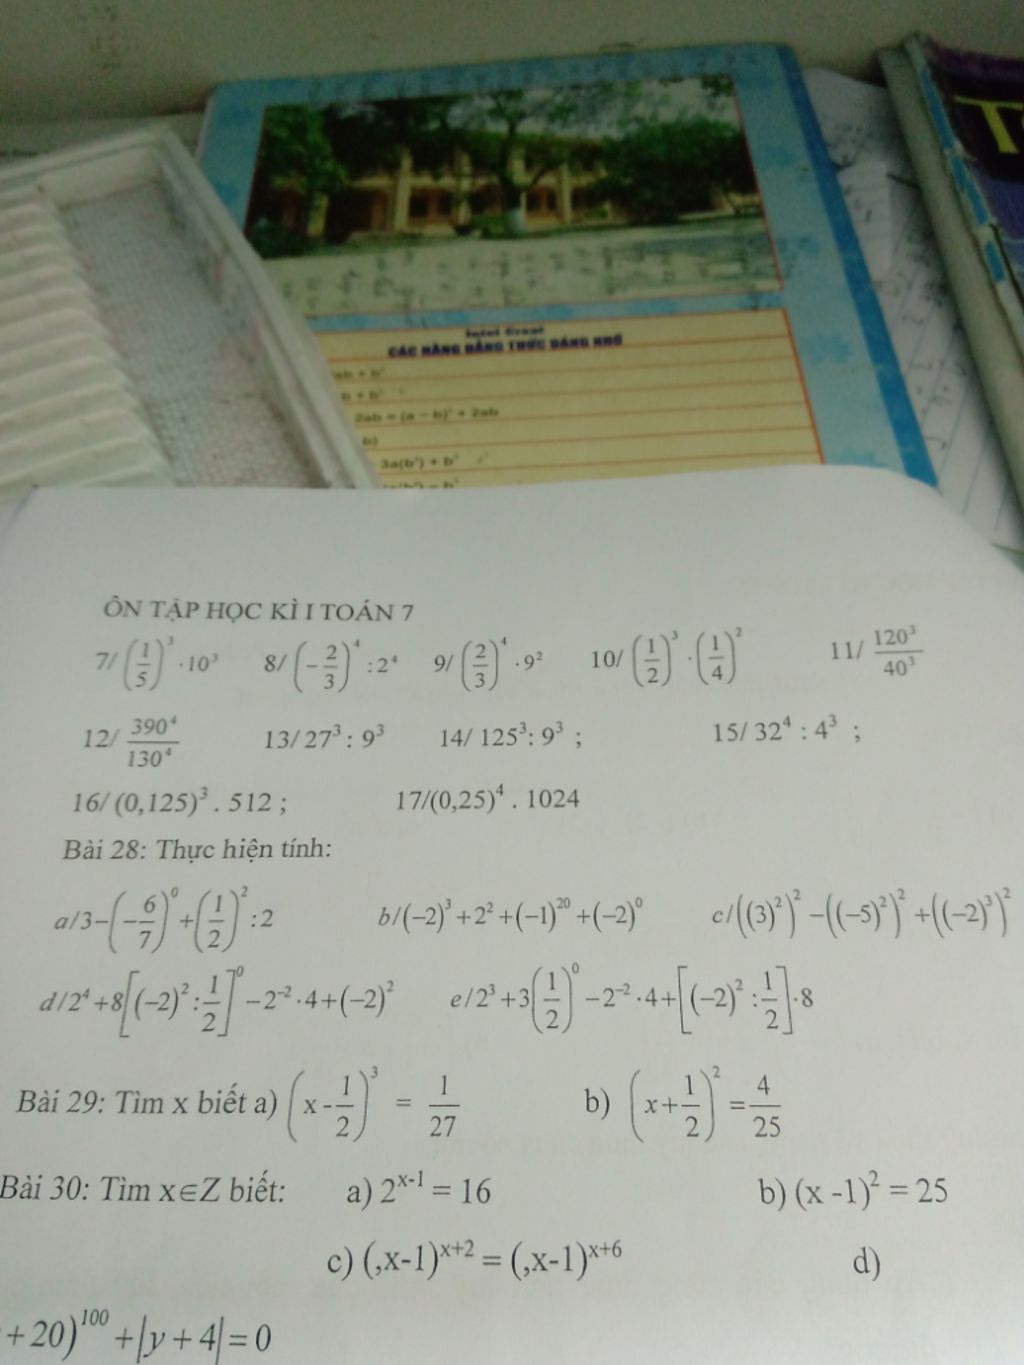 Intel Grant
CÁC HẰNG ĐẲNG THỨC ĐÁNG NHỚ
2ab = (a − b)² + 2ab
b)
3a(b²) + b³
ÔN TẬP HỌC KÌ I TOÁN 7
7/ (1/5)³ · 10³ 8/ (−2/3)⁴ : 2⁴ 9/ (2/3)⁴ · 9² 10/ (1/2)³ · (1/4)² 11/ 120³/40³
12/ 390⁴/130⁴ 13/ 27³ : 9³ 14/ 125³: 9³ ; 15/ 32⁴ : 4³ ;
16/ (0,125)³ . 512 ; 17/(0,25)⁴ . 1024
Bài 28: Thực hiện tính:
a/3−(−6/7)⁰+(1/2)²:2 b/(−2)³+2²+(−1)²⁰+(−2)⁰ c/((3)²)²−((−5)²)²+((−2)³)²
d/2⁴+8[(−2)²:1/2]⁰−2⁻²·4+(−2)² e/2³+3(1/2)⁰−2⁻²·4+[(−2)²:1/2]·8
Bài 29: Tìm x biết a) (x-1/2)³ = 1/27 b) (x+1/2)²=4/25
Bài 30: Tìm x∈Z biết: a) 2ˣ⁻¹ = 16 b) (x -1)² = 25
c) (,x-1)ˣ⁺² = (,x-1)ˣ⁺⁶ d)
+20)¹⁰⁰+|y+4|=0